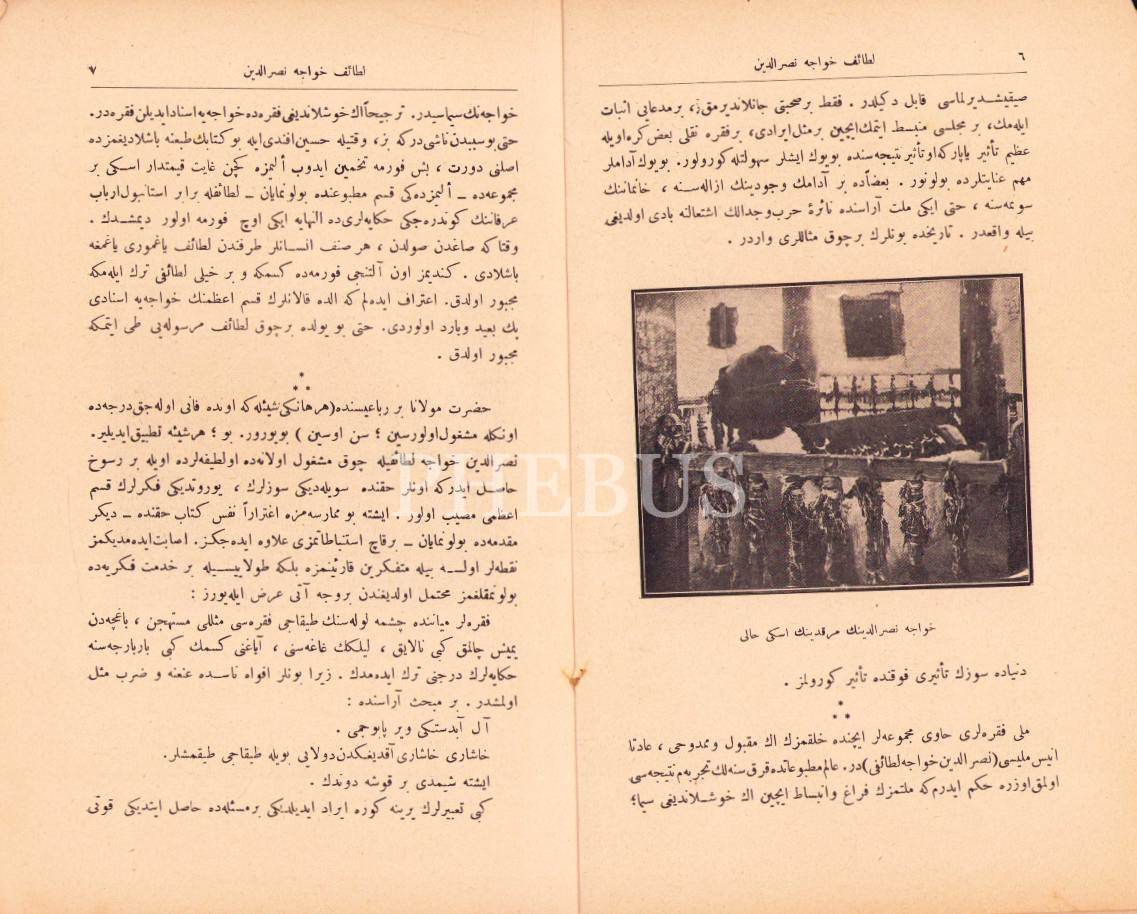 ٦
لطائف خواجه نصرالدین
صیقیشدیرلماسی قابل دكیلدر . فقط برصحبتی جانلاندیرمق، برمدعایی اثبات
ایله‌مك، بر مجلسی منبسط ایتمك ایچین برمثل ایرادی، برفقره نقلی بعض كره اویله
عظیم تأثیر یاپاركه اوتأثیر نتیجه‌سنده بویوك ایشلر سهولتله كورولور. بویوك آداملر
مهم عنایتلرده بولونور . بعضاًده بر آدامك وجودینك ازاله‌سنه ، خانماننك
سونمه‌سنه ، حتی ایكی ملت آراسنده نائرهٔ حرب وجدالك اشتعالنه بادی اولدیغی
بیله واقعدر . تاریخده بونلرك برچوق مثاللری واردر .
خواجه نصرالدینك مرقدینك اسكی حالی
دنیاده سوزك تأثیری فوقنده تأثیر كورولمز .
*
* *
ملی فقره‌لری حاوی مجموعه‌لر ایچنده خلقمزك اك مقبول وممدوحی ، عادتا
انیس ملیسی (نصرالدین خواجه لطائفی)در. عالم مطبوعاتده قرق سنه‌لك تجربه‌م نتیجه‌سی
اولمق اوزره حكم ایدرم كه ملتمزك فراغ وانبساط ایچین اك خوشلاندیغی سیما؛
لطائف خواجه نصرالدین
٧
خواجه‌نك سیماسیدر. ترجیحاً اك خوشلاندیغی فقره‌ده خواجه‌یه اسناد ایدیلن فقره‌در.
حتی بوسببدن ناشی‌دركه بز، وقتیله حسین افندی ایله بو كتابك طبعنه باشلادیغمزده
اصلنی دورت ، بش فورمه تخمین ایدوب ألیمزه كچن غایت قیمتدار اسكی بر
مجموعه‌ده ــ ألیمزده‌كی قسم مطبوعنده بولونمایان ــ لطائفله برابر استانبول ارباب
عرفاننك كوندره‌جكی حكایه‌لری‌ده النهایه ایكی اوچ فورمه اولور دیمشدك .
وقتاكه صاغدن صولدن ، هر صنف انسانلر طرفندن لطائف یاغموری یاغمغه
باشلادی . كندیمز اون آلتنجی فورمه‌ده كسمكه و بر خیلی لطائفی ترك ایله‌مكه
مجبور اولدق. اعتراف ایده‌لم كه الده قالانلرك قسم اعظمنك خواجه‌یه اسنادی
پك بعید وبارد اولوردی. حتی بو یولده برچوق لطائف مرسوله‌یی طی ایتمكه
مجبور اولدق .
*
* *
حضرت مولانا بر رباعیسنده (هر هانكی شیئله كه اونده فانی اوله‌جق درجه‌ده
اونكله مشغول اولورسین ؛ سن اوسین ) بویورور. بو ؛ هر شیئه تطبیق ایدیلیر.
نصرالدین خواجه لطائفیله چوق مشغول اولانه‌ده اولطیفه‌لرده اویله بر رسوخ
حاصل ایدركه اونلر حقنده سویله‌دیكی سوزلرك ، یوروتدیكی فكرلرك قسم
اعظمی مصیب اولور . ایشته بو ممارسه‌مزه اغتراراً نفس كتاب حقنده ــ دیكر
مقدمه‌ده بولونمایان ــ برقاچ استنباطاتمزی علاوه ایده‌جكز. اصابت ایده‌مدیكمز
نقطه‌لر اولــه بیله متفكرین قارئینمزه بلكه طولاییسیله بر خدمت فكریه‌ده
بولونمقلغمز محتمل اولدیغندن بروجه آتی عرض ایله‌یورز :
فقره‌لر میاننده چشمه لوله‌سنك طیقاجی فقره‌سی مثللی مستهجن ، باغچه‌دن
یمیش چالمق كبی نالایق ، لیلكك غاغه‌سنی ، آیاغنی كسمك كبی بارباریجه‌سنه
حكایه‌لرك درجنی ترك ایده‌مدك . زیرا بونلر افواه ناسده عنعنه و ضرب مثل
اولمشدر . بر مبحث آراسنده :
آل آبدستكی ویر پابوجمی .
خاشاری خاشاری آقدیغكدن دولایی بویله طیقاجی طیقمشلر.
ایشته شیمدی بر قوشه دوندك .
كبی تعبیرلرك یرینه كوره ایراد ایدیلدیكی برمسئله‌ده حاصل ایتدیكی قوتی
PHEBUS